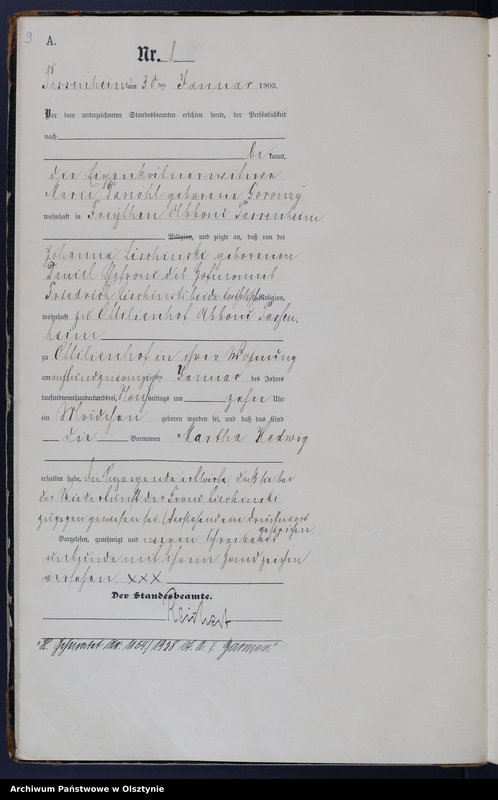 9
A.
Nr. 8
Passenheim am 30ten Januar 1903.
Vor dem unterzeichneten Standesbeamten erschien heute, der Persönlichkeit
nach
be kannt,
die Eigenkätnerwitwe
Marie Danöhl geborene Goronzy
wohnhaft in Freythen Abbau Passenheim
Religion, und zeigte an, daß von der
Johanna Lischinski geborenen
Daniel Ehefrau des Hofmanns
Friedrich Lischinski beide Religion,
wohnhaft zu Ottilienhof Abbau Passen-
heim
zu Ottilienhof in ihrer Wohnung
am achtundzwanzigsten Januar des Jahres
tausendneunhundertunddrei, Nach mittags um zehn Uhr
ein Mädchen geboren worden sei, und daß das Kind
die Vornamen Martha Hedwig
erhalten habe. Die Anzeigende erklärte daß sie bei
der Niederkunft der Frau Lischinski
zugegen gewesen sei. Vorstehend ein Druckwort
gestrichen.
Vorgelesen, genehmigt und wegen Schreibens
unkunde mit ihrem Handzeichen
versehen. xxx
Der Standesbeamte.
Reichert
Geheiratet Nr. 1938 St. A. I. Barmen
Archiwum Państwowe w Olsztynie